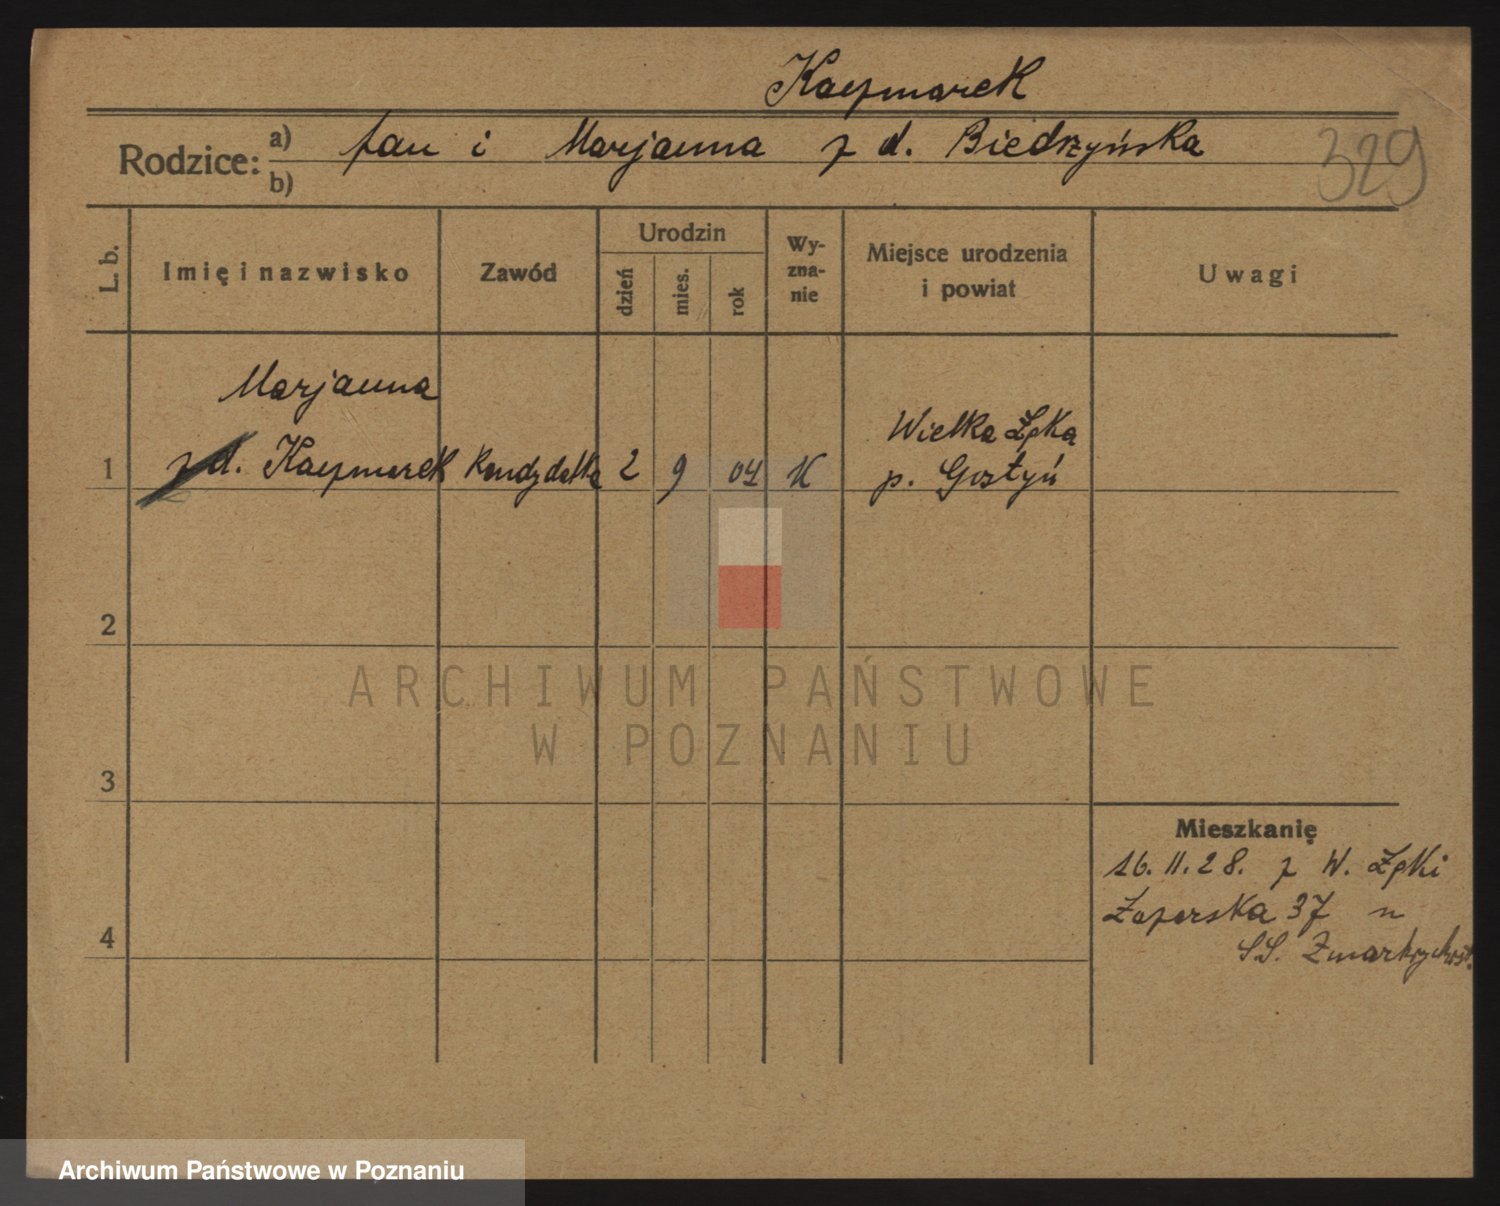 Kaczmarek
Rodzice: a) Jan i Marjanna z d. Biedrzyńska
b)
329
L. b. Imię i nazwisko Zawód Urodzin dzień mies. rok Wy-zna-nie Miejsce urodzenia i powiat Uwagi
Marjanna
Wielka Łęka
1 z d. Kaczmarek Kandydatka 2 9 04 K p. Gostyń
2
ARCHIWUM PAŃSTWOWE
W POZNANIU
3
Mieszkanię
16. II. 28. z W. Łęki
4
37 u
SS. Zmartwychwst.
Archiwum Państwowe w Poznaniu